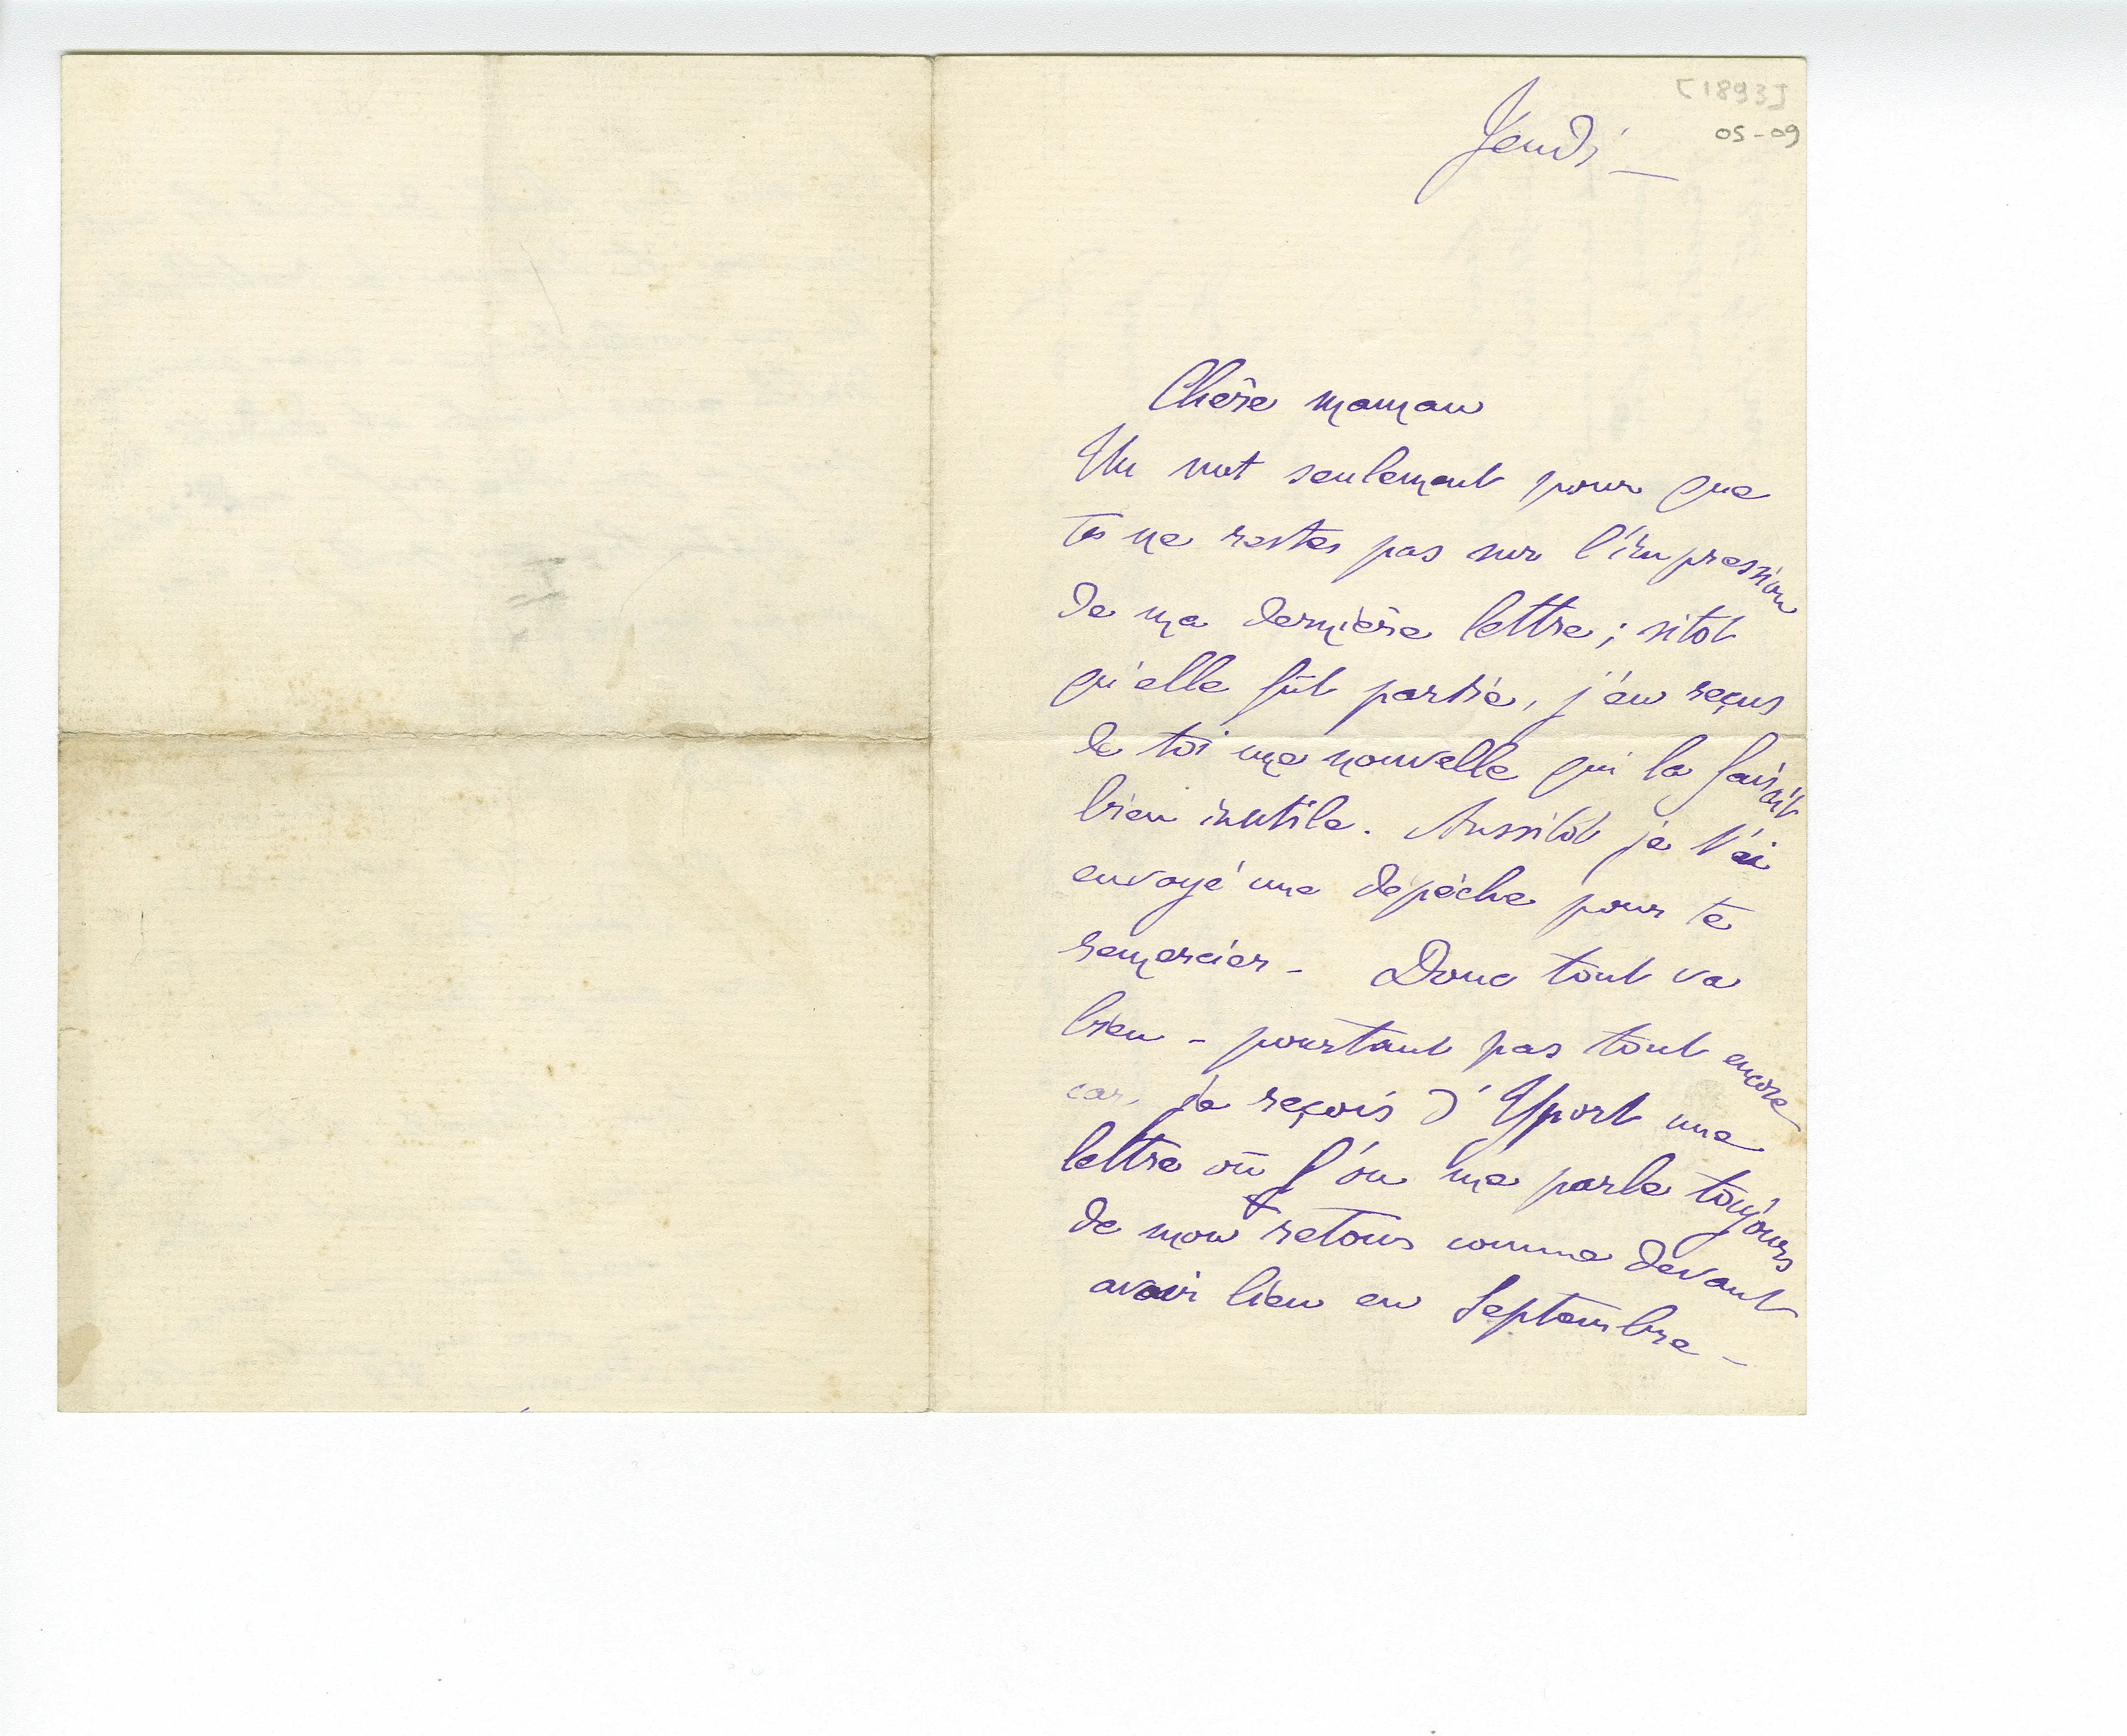 [1893]
05-09
Jeudi _
Chère maman
Un mot seulement pour que
tu ne restes pas sur l'impression
de ma dernière lettre ; sitot
qu'elle fût partie, j'en reçus
de toi une nouvelle qui la faisait
bien inutile. Aussitôt je t'ai
envoyé une dépêche pour te
remercier - Donc tout va
bien - pourtant pas tout encore
car, je reçois d'Yport une
lettre où l'on me parle toujours
de mon retour comme devant
avoir lieu en Septembre -